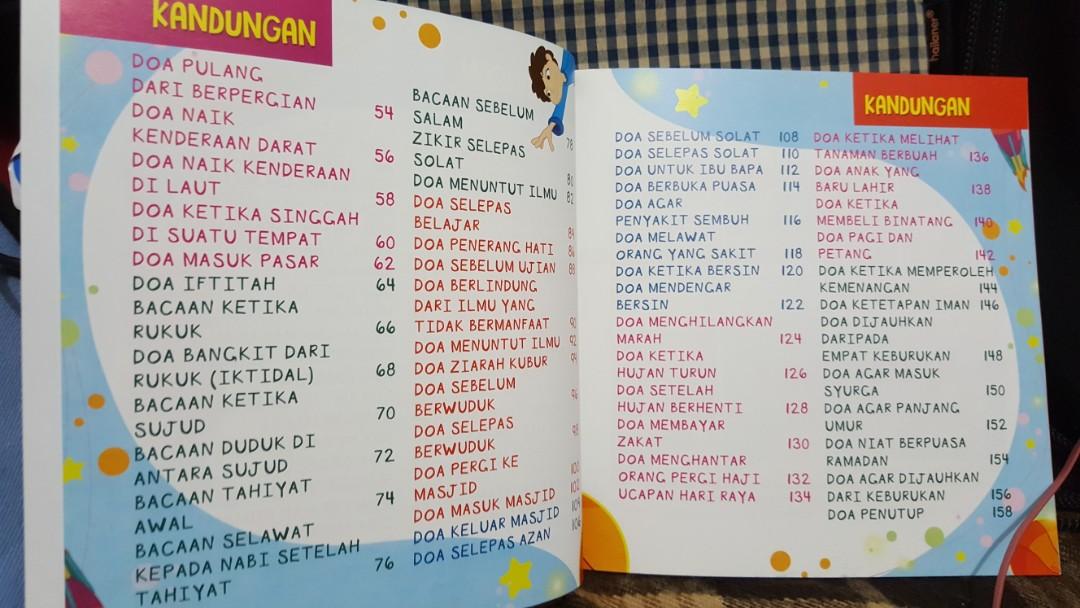 KANDUNGAN
DOA PULANG
DARI BERPERGIAN 54
DOA NAIK
KENDERAAN DARAT 56
DOA NAIK KENDERAAN
DI LAUT 58
DOA KETIKA SINGGAH
DI SUATU TEMPAT 60
DOA MASUK PASAR 62
DOA IFTITAH 64
BACAAN KETIKA
RUKUK 66
DOA BANGKIT DARI
RUKUK (IKTIDAL) 68
BACAAN KETIKA
SUJUD 70
BACAAN DUDUK DI
ANTARA SUJUD 72
BACAAN TAHIYAT
AWAL 74
BACAAN SELAWAT
KEPADA NABI SETELAH
TAHIYAT 76
BACAAN SEBELUM
SALAM 78
ZIKIR SELEPAS
SOLAT
DOA MENUNTUT ILMU 82
DOA SELEPAS
BELAJAR
DOA PENERANG HATI
DOA SEBELUM UJIAN
DOA BERLINDUNG
DARI ILMU YANG
TIDAK BERMANFAAT
DOA MENUNTUT ILMU
DOA ZIARAH KUBUR
DOA SEBELUM
BERWUDUK
DOA SELEPAS
BERWUDUK
DOA PERGI KE
MASJID
DOA MASUK MASJID
DOA KELUAR MASJID
DOA SELEPAS AZAN
hallaner®
KANDUNGAN
DOA SEBELUM SOLAT 108
DOA SELEPAS SOLAT 110
DOA UNTUK IBU BAPA 112
DOA BERBUKA PUASA 114
DOA AGAR
PENYAKIT SEMBUH 116
DOA MELAWAT
ORANG YANG SAKIT 118
DOA KETIKA BERSIN 120
DOA MENDENGAR
BERSIN 122
DOA MENGHILANGKAN
MARAH 124
DOA KETIKA
HUJAN TURUN 126
DOA SETELAH
HUJAN BERHENTI 128
DOA MEMBAYAR
ZAKAT 130
DOA MENGHANTAR
ORANG PERGI HAJI 132
UCAPAN HARI RAYA 134
DOA KETIKA MELIHAT
TANAMAN BERBUAH 136
DOA ANAK YANG
BARU LAHIR 138
DOA KETIKA
MEMBELI BINATANG 140
DOA PAGI DAN
PETANG 142
DOA KETIKA MEMPEROLEH
KEMENANGAN 144
DOA KETETAPAN IMAN 146
DOA DIJAUHKAN
DARIPADA
EMPAT KEBURUKAN 148
DOA AGAR MASUK
SYURGA 150
DOA AGAR PANJANG
UMUR 152
DOA NIAT BERPUASA
RAMADAN 154
DOA AGAR DIJAUHKAN
DARI KEBURUKAN 156
DOA PENUTUP 158